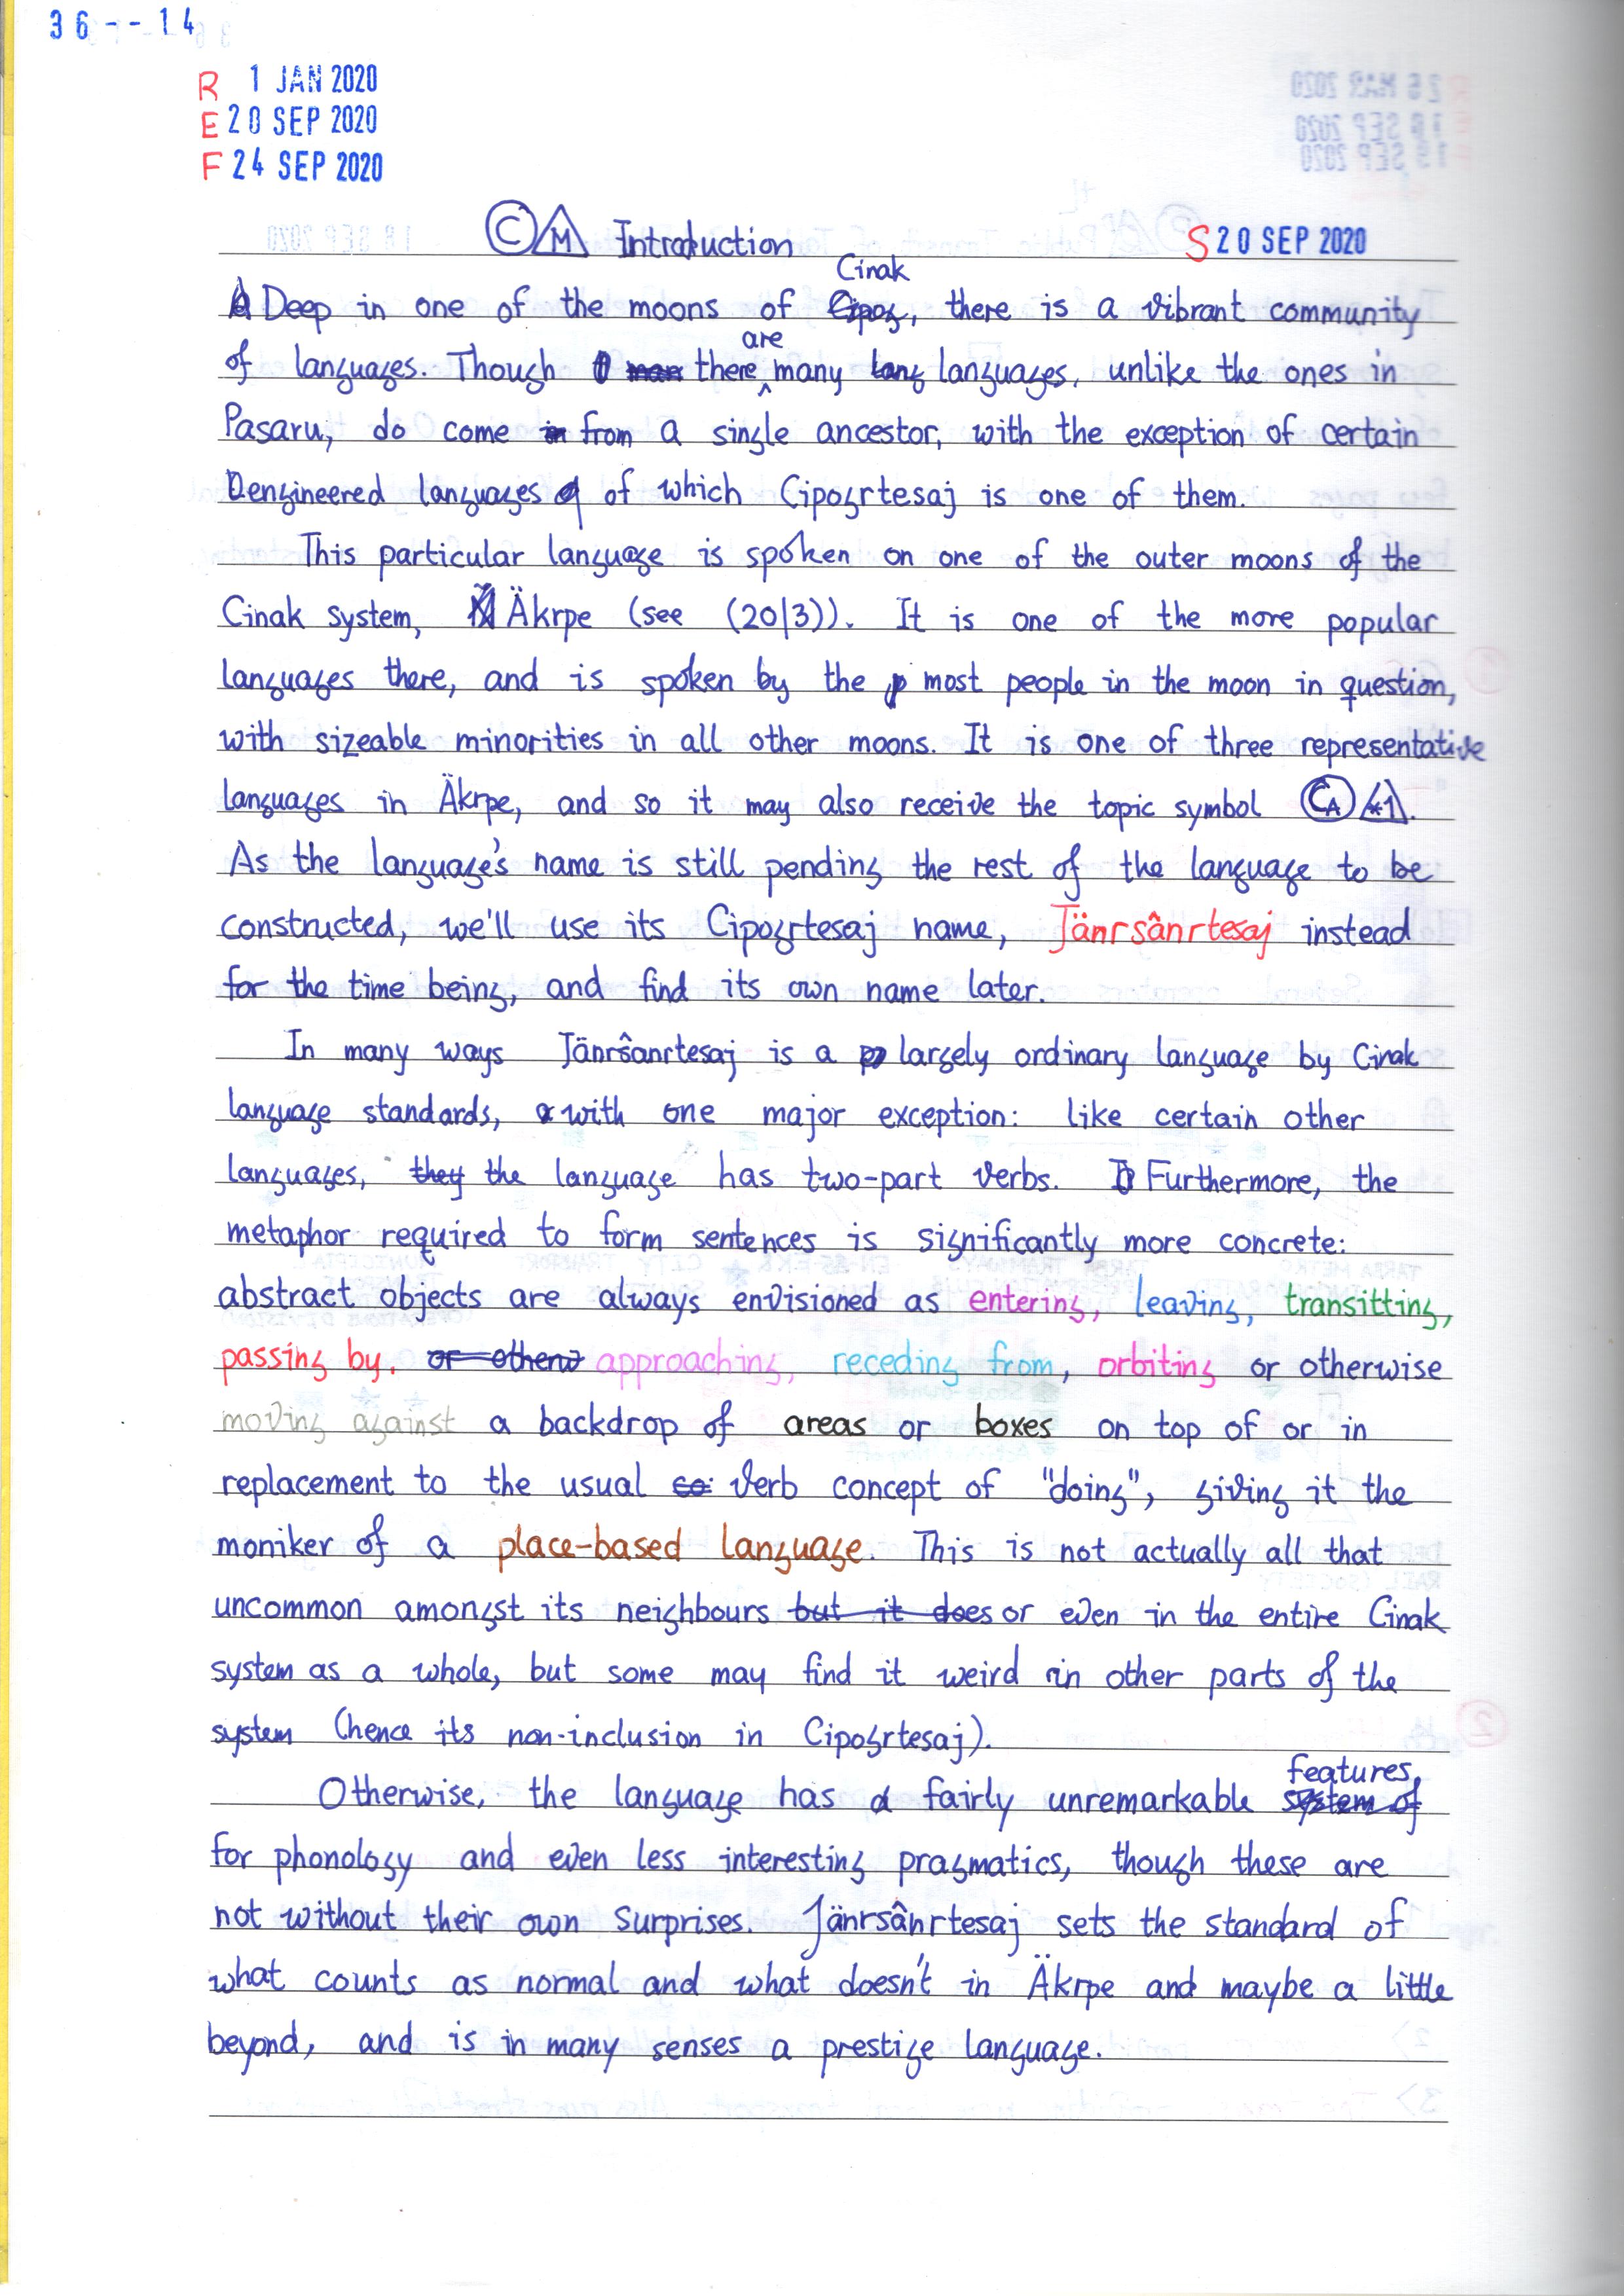 36--14
R 1 JAN 2020
E 20 SEP 2020
F 24 SEP 2020
C M Introduction S 20 SEP 2020
Cinak
Deep in one of the moons of Cipog, there is a vibrant community
are
of languages. Though there many lang languages, unlike the ones in
Pasaru, do come in from a single ancestor, with the exception of certain
engineered languages of which Cipogrtesaj is one of them.
This particular language is spoken on one of the outer moons of the
Cinak system, Äkrpe (see (20|3)). It is one of the more popular
languages there, and is spoken by the most people in the moon in question,
with sizeable minorities in all other moons. It is one of three representative
languages in Äkrpe, and so it may also receive the topic symbol CA *1.
As the language's name is still pending the rest of the language to be
constructed, we'll use its Cipogrtesaj name, Jänrsânrtesaj instead
for the time being, and find its own name later.
In many ways Jänrŝanrtesaj is a largely ordinary language by Cinak
language standards, with one major exception: like certain other
languages, they the language has two-part verbs. Furthermore, the
metaphor required to form sentences is significantly more concrete:
abstract objects are always envisioned as entering, leaving, transitting,
passing by, or otherw approaching, receding from, orbiting or otherwise
moving against a backdrop of areas or boxes on top of or in
replacement to the usual co verb concept of "doing", giving it the
moniker of a place-based language. This is not actually all that
uncommon amongst its neighbours but it does or even in the entire Cinak
system as a whole, but some may find it weird in other parts of the
system (hence its non-inclusion in Cipogrtesaj).
features,
Otherwise, the language has a fairly unremarkable system of
for phonology and even less interesting pragmatics, though these are
not without their own surprises. Jänrsânrtesaj sets the standard of
what counts as normal and what doesn't in Äkrpe and maybe a little
beyond, and is in many senses a prestige language.